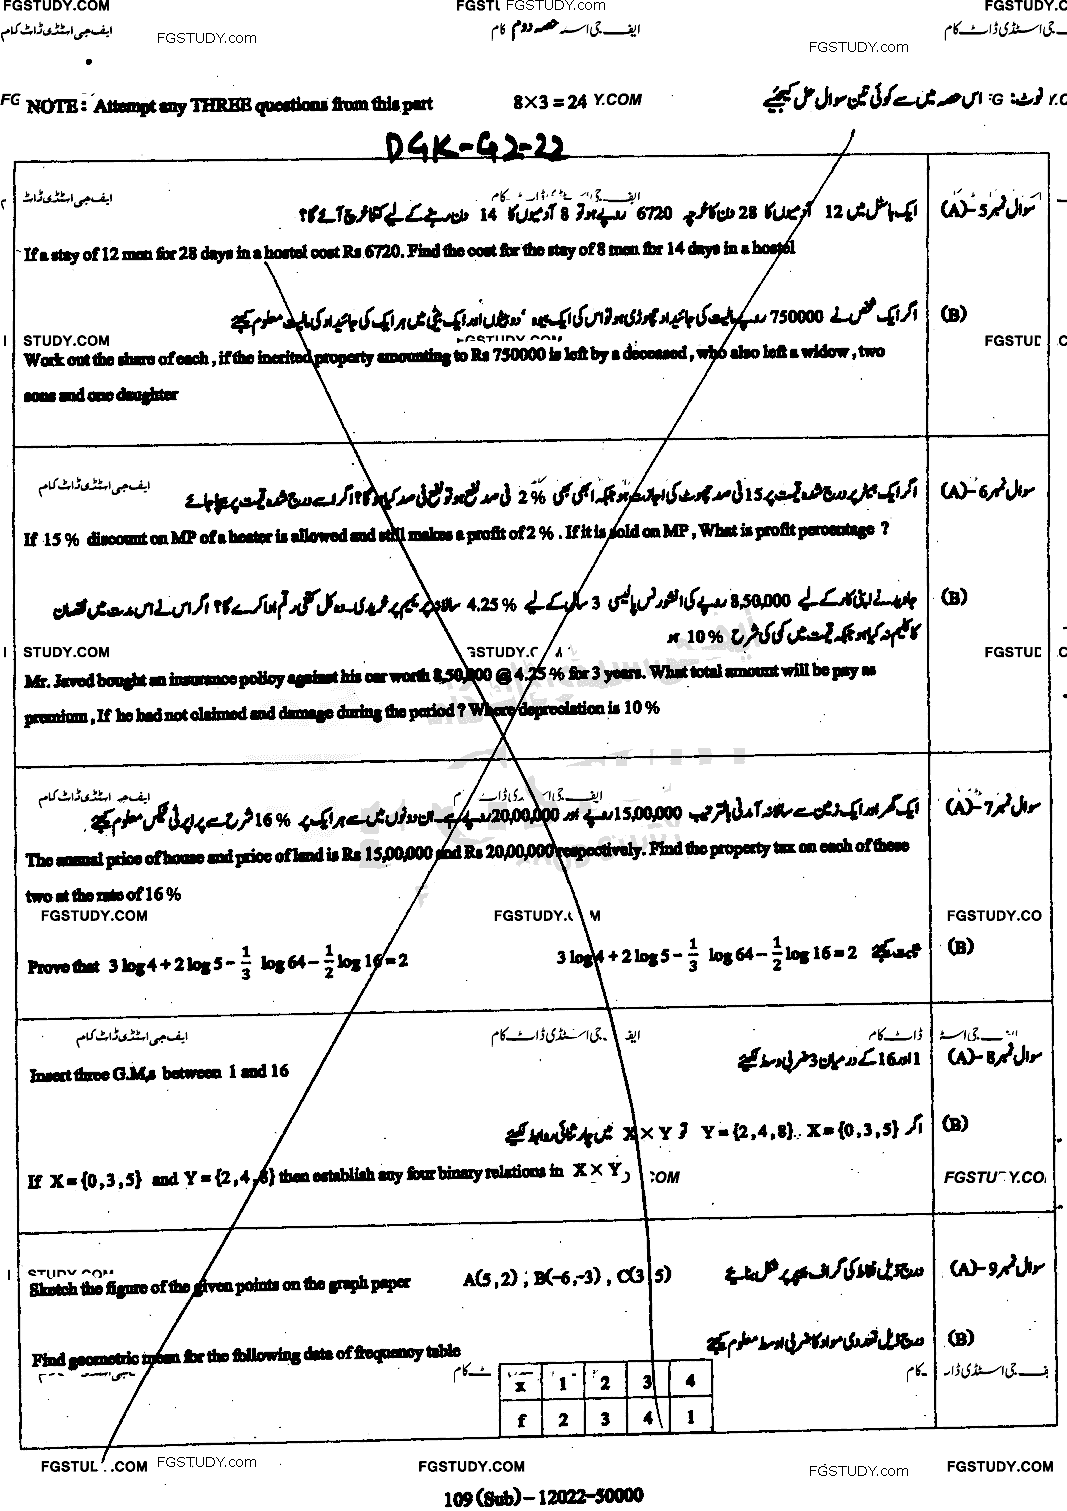 FGSTUDY.COM FGSTU FGSTUDY.COM FGSTUDY.C
ایف جی اسٹڈی ڈاٹ کام FGSTUDY.com حصہ دوم کام FGSTUDY.com جی اسٹڈی ڈاٹ کام
NOTE: Attempt any THREE questions from this part 8×3=24 Y.COM نوٹ: اس حصہ میں سے کوئی تین سوال حل کیجئے
DGK-G2-22
ایف جی اسٹڈی ڈاٹ
سوال نمبر 5-(A) ایک ہاسٹل میں 12 آدمیوں کا 28 دن کا خرچہ 6720 روپے ہو تو 8 آدمیوں کا 14 دن رہنے کے لیے کتنا خرچ آئے گا؟
If a stay of 12 men for 28 days in a hostel cost Rs 6720. Find the cost for the stay of 8 men for 14 days in a hostel
(B) اگر ایک شخص نے 750000 روپے مالیت کی جائیداد چھوڑی ہو تو اس کی ایک بیوہ ' دو بیٹوں اور ایک بیٹی میں ہر ایک کی جائیداد کی مالیت معلوم کیجئے
STUDY.COM FGSTUDY.COM FGSTUD
Work out the share of each, if the inerited property amounting to Rs 750000 is left by a deceased, who also left a widow, two
sons and one daughter
ایف جی اسٹڈی ڈاٹ کام
سوال نمبر 6-(A) اگر ایک ہیٹر پر درج شدہ قیمت پر 15 فی صد چھوٹ کی اجازت ہو جبکہ ابھی بھی 2 % فی صد نفع ہو تو نفع فی صد کیا ہوگا؟ اگر اسے درج شدہ قیمت پر بیچا جائے
If 15 % discount on MP of a heater is allowed and still makes a profit of 2 % . If it is sold on MP , What is profit percentage ?
(B) جاوید نے اپنی کار کے لیے 8,50,000 روپے کی انشورنس پالیسی 3 سال کے لیے 4.25 % سالانہ پریمیم پر خریدی۔ وہ کل کتنی رقم ادا کرے گا؟ اگر اس نے اس مدت میں نقصان
کا کلیم نہ کیا ہو جبکہ قیمت میں کمی کی شرح 10 % ہو
STUDY.COM GSTUDY.C FGSTUD
Mr. Javed bought an insurance policy against his car worth 8,50,000 @ 4.25 % for 3 years. What total amount will be pay as
premium , If he had not claimed and damage during the period ? Where depreciation is 10 %
ایف جی اسٹڈی ڈاٹ کام
سوال نمبر 7-(A) ایک گھر اور ایک زمین سے سالانہ آمدنی بالترتیب 15,00,000 روپے اور 20,00,000 روپے ہے۔ ان دونوں میں سے ہر ایک پر 16 % شرح سے پراپرٹی ٹیکس معلوم کیجئے
The annual price of house and price of land is Rs 15,00,000 and Rs 20,00,000 respectively. Find the property tax on each of these
two at the rate of 16 %
FGSTUDY.COM FGSTUDY.COM FGSTUDY.CO
Prove that 3 log 4 + 2 log 5 − 1/3 log 64 − 1/2 log 16 = 2 3 log 4 + 2 log 5 − 1/3 log 64 − 1/2 log 16 = 2 ثابت کیجئے (B)
ایف جی اسٹڈی ڈاٹ کام ایف جی اسٹڈی ڈاٹ کام ڈاٹ کام ایف جی اسٹ
سوال نمبر 8-(A) 1 اور 16 کے درمیان 3 ضربی وسط لکھئے
Insert three G.M,s between 1 and 16
(B) اگر X = {0,3,5} , Y = {2,4,8} تو X × Y میں چار ثنائی روابط لکھئے
If X = {0,3,5} and Y = {2,4,8} then establish any four binary relations in X × Y
.COM FGSTU Y.CO
STUDY.COM
سوال نمبر 9-(A) درج ذیل نقاط کی گراف پیپر پر شکل بنائیے
Sketch the figure of the given points on the graph paper A(5,2) ; B(-6,-3) , C(3,5)
(B) درج ذیل تعددی مواد کا ضربی اوسط معلوم کیجئے
Find geometric mean for the following data of frequency table
x 1 2 3 4
f 2 3 4 1
FGSTU .COM FGSTUDY.com FGSTUDY.COM FGSTUDY.com FGSTUDY.COM
109 (Sub) – 12022-50000